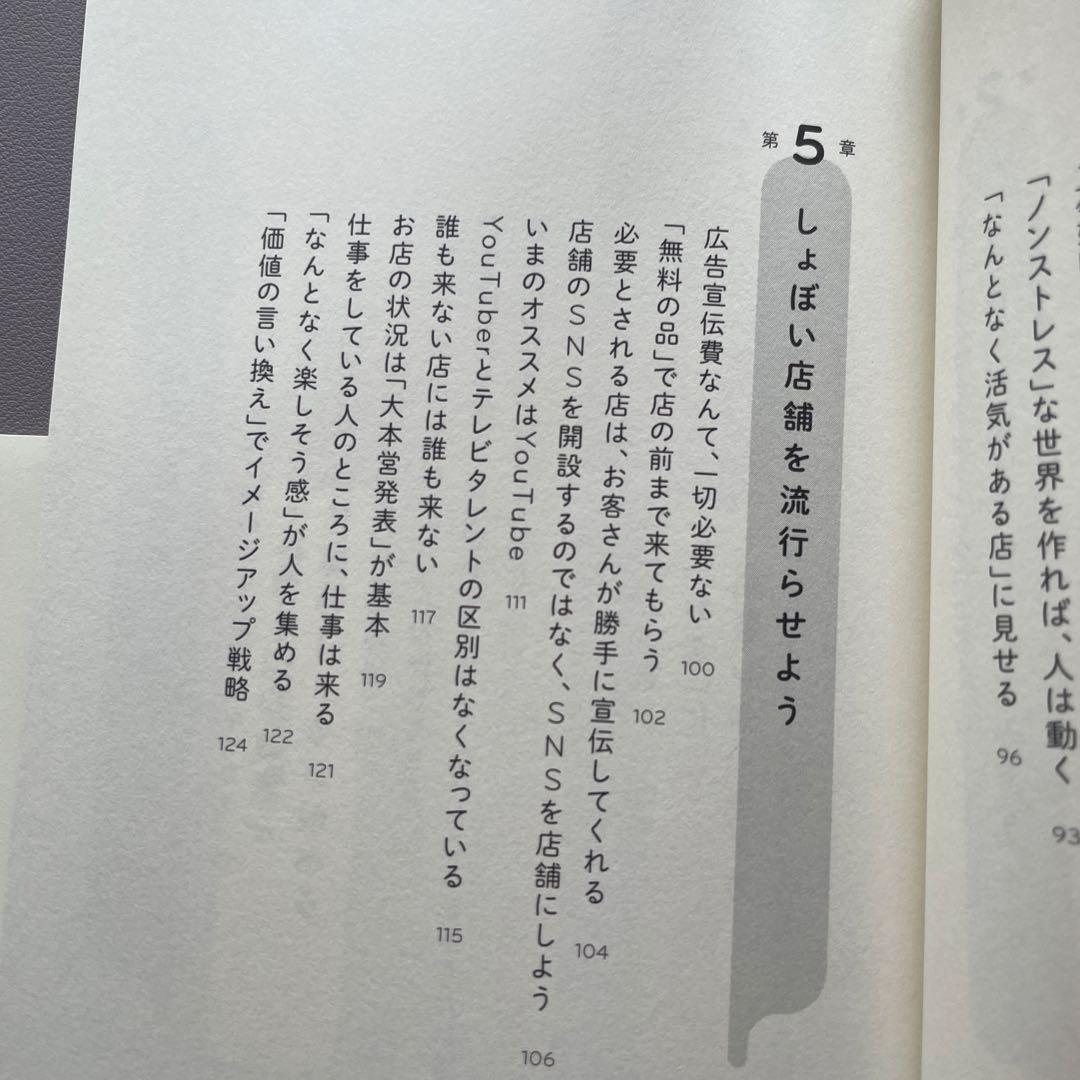 「ノンストレス」な世界を作れば、人は動く 93
「なんとなく活気がある店」に見せる 96
第5章 しょぼい店舗を流行らせよう
広告宣伝費なんて、一切必要ない 100
「無料の品」で店の前まで来てもらう 102
必要とされる店は、お客さんが勝手に宣伝してくれる 104
店舗のSNSを開設するのではなく、SNSを店舗にしよう 106
いまのオススメはYouTube 111
YouTuberとテレビタレントの区別はなくなっている 115
誰も来ない店には誰も来ない 117
お店の状況は「大本営発表」が基本 119
仕事をしている人のところに、仕事は来る 121
「なんとなく楽しそう感」が人を集める 122
「価値の言い換え」でイメージアップ戦略 124